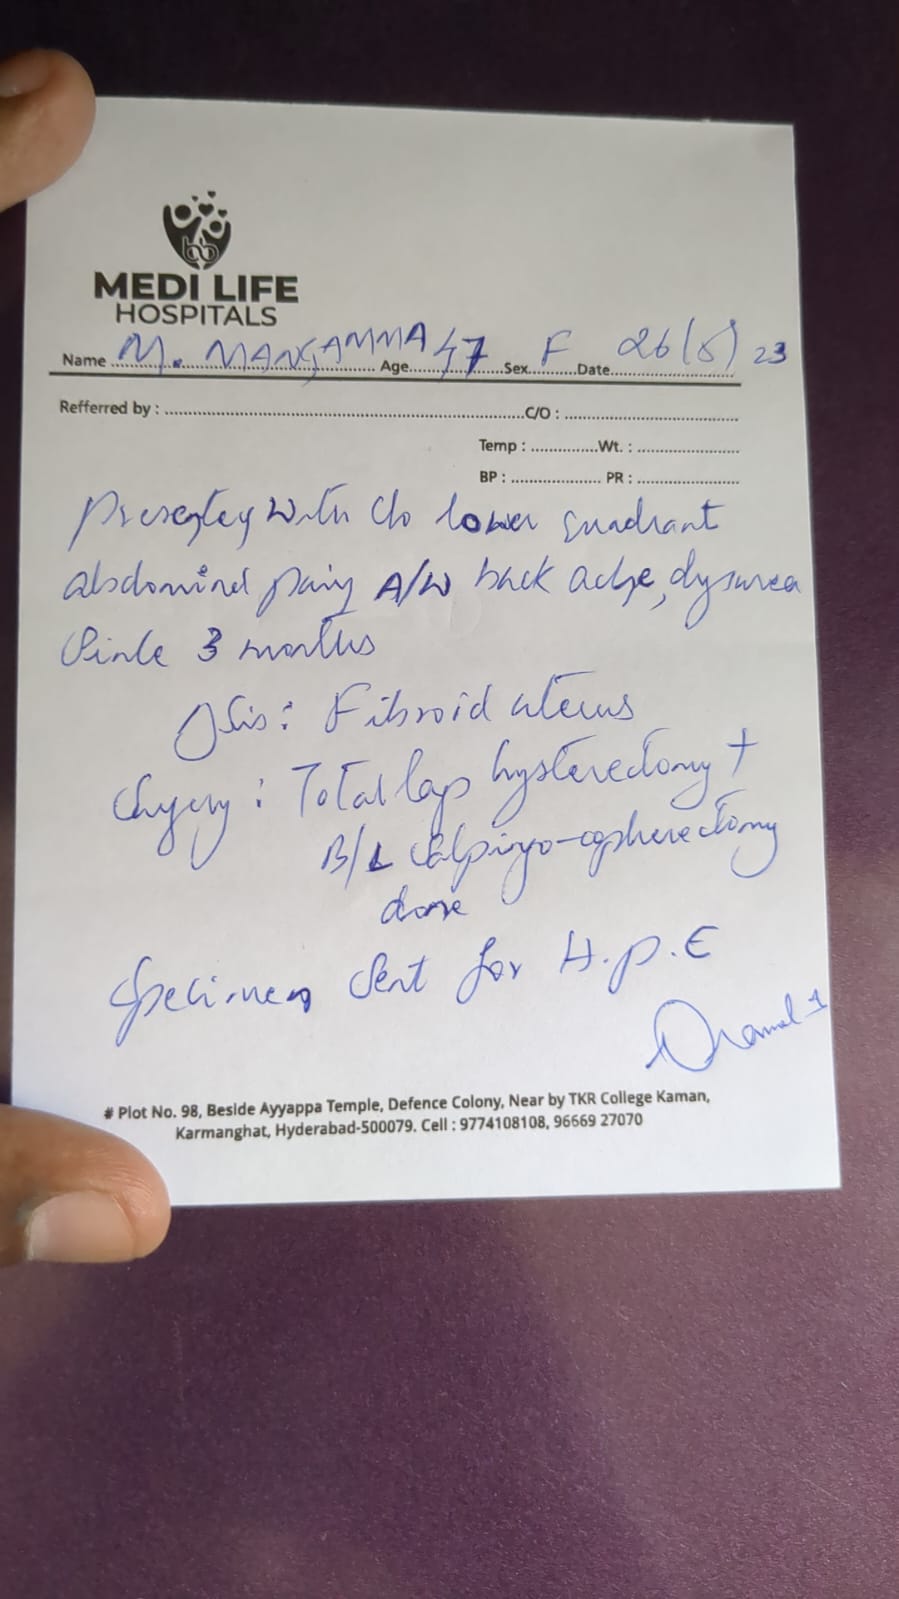 MEDI LIFE
HOSPITALS
Name M. MANGAMMA Age 47 Sex F Date 26/8/23
Refferred by : C/O :
Temp : Wt. :
BP : PR :
Presenting with C/o lower quadrant
abdominal pain A/W back ache, dysurea
Since 3 months
Δsis: Fibroid uterus
Surgery : Total lap hysterectomy +
B/L Salpingo-oopherectomy
done
Specimen Sent for H.P.E
# Plot No. 98, Beside Ayyappa Temple, Defence Colony, Near by TKR College Kaman,
Karmanghat, Hyderabad-500079. Cell : 9774108108, 96669 27070